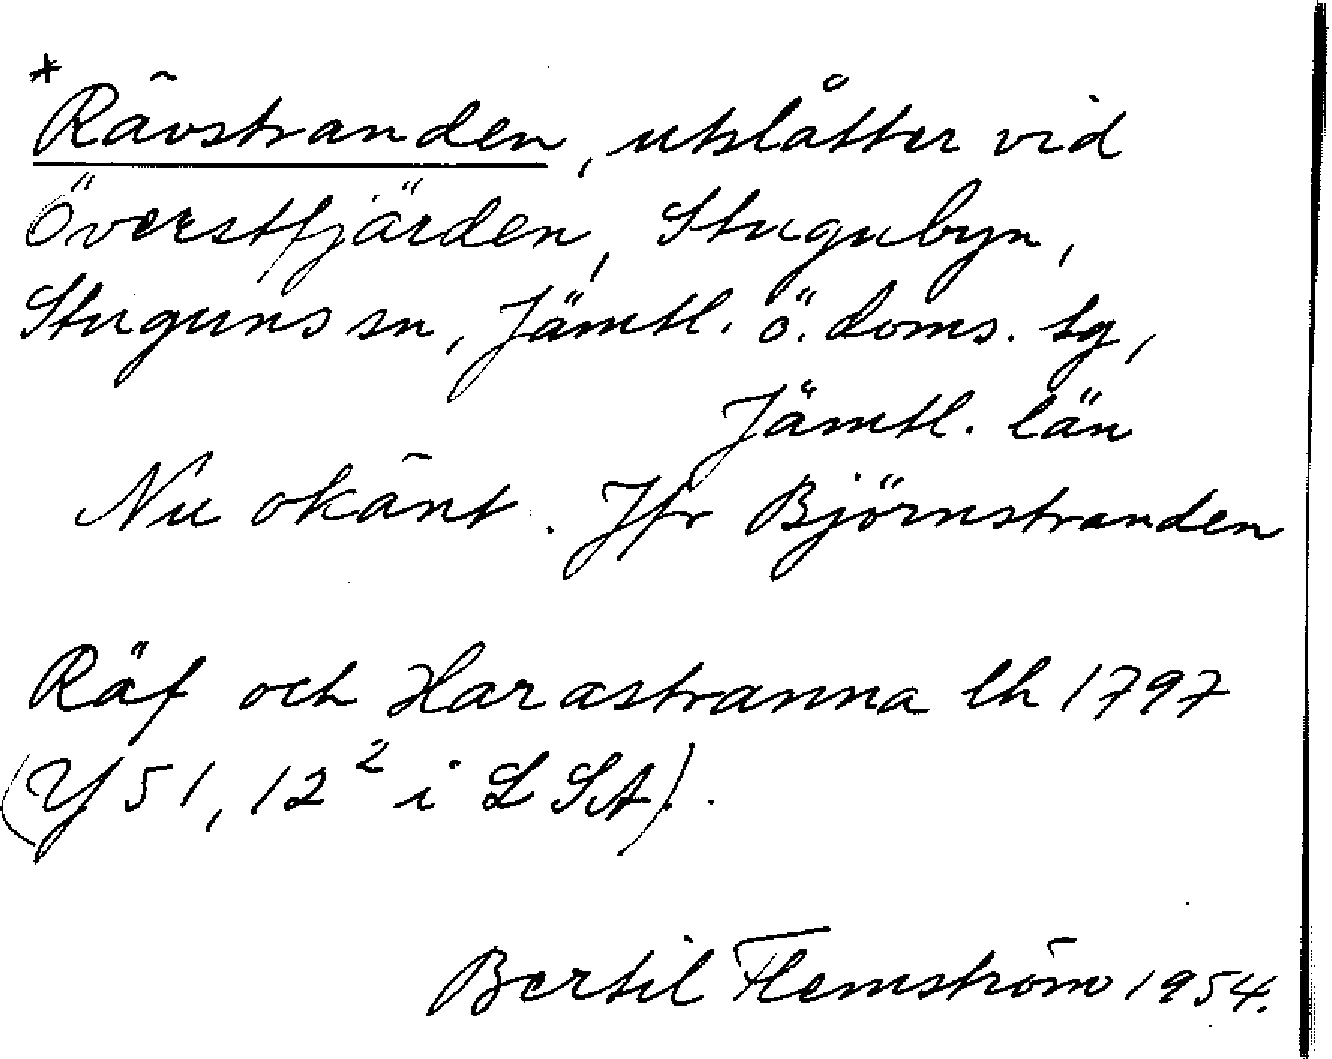 *Rävstranden, utslåtter vid
Överstfjärden, Stugubyn,
Stuguns sn, Jämtl. ö. doms. tg,
Jämtl. län
Nu okänt. Jfr Björnstranden
Räf och Harastranna lh 1797
(Y 51, 12² i LSA).
Bertil Flemström 1954.